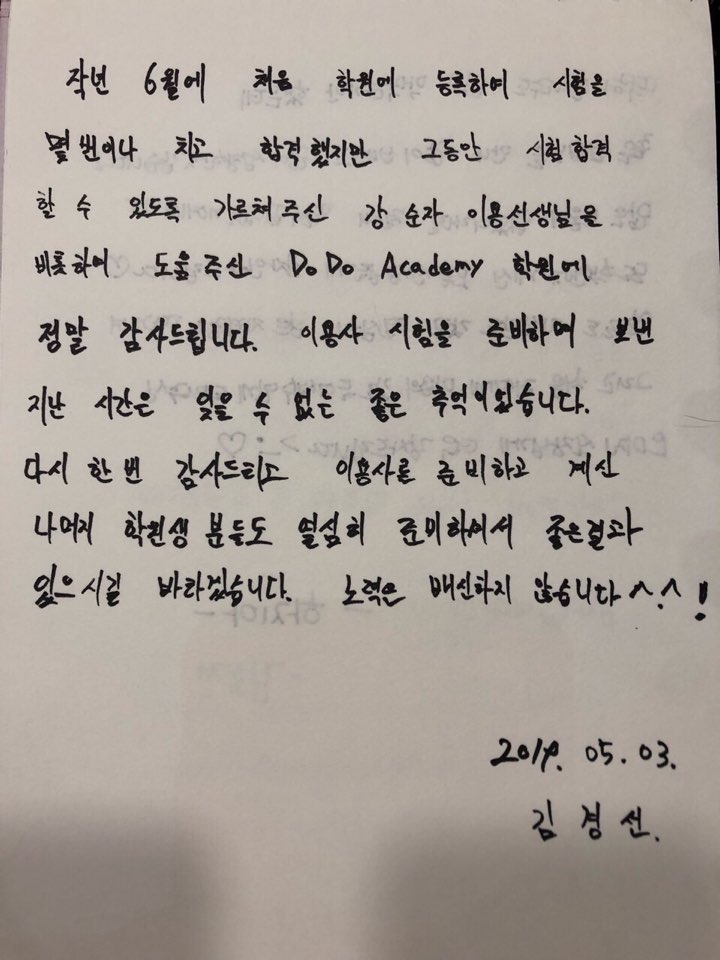 작년 6월에 처음 학원에 등록하여 시험을
몇 번이나 치고 합격했지만 그동안 시험 합격
할 수 있도록 가르쳐 주신 강 순자 이용선생님을
비롯하여 도움 주신 DoDo Academy 학원에
정말 감사드립니다. 이용사 시험을 준비하며 보낸
지난 시간은 잊을 수 없는 좋은 추억이었습니다.
다시 한 번 감사드리고 이용사를 준비하고 계신
나머지 학원생 분들도 열심히 준비하여서 좋은결과
있으시길 바라겠습니다. 노력은 배신하지 않습니다 ^.^ !
2019. 05. 03.
김 경 선.